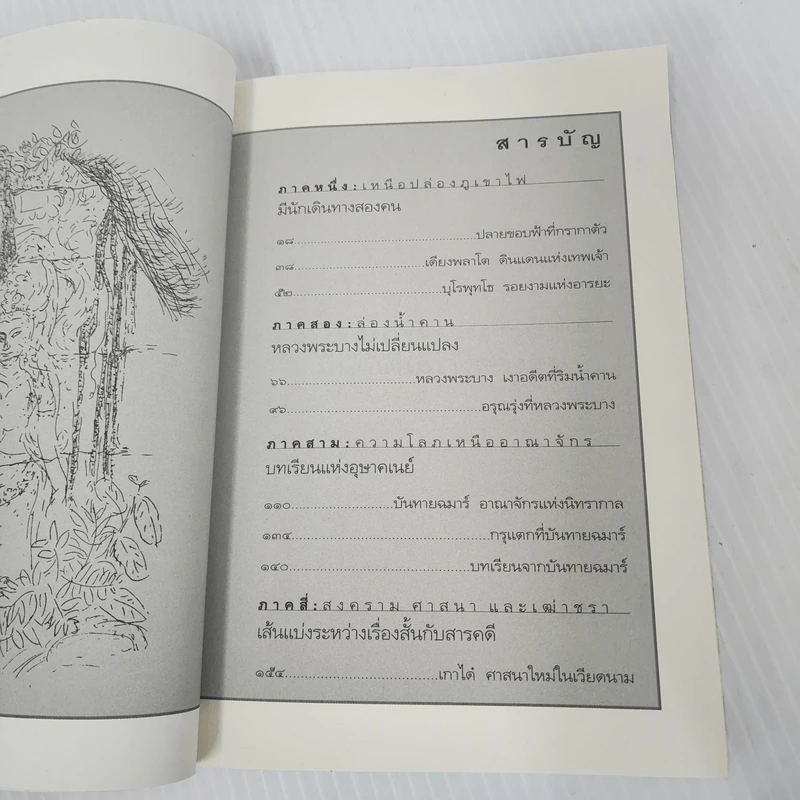 สารบัญ
ภาคหนึ่ง:เหนือปล่องภูเขาไฟ
มีนักเดินทางสองคน
๑๘...............................................ปลายขอบฟ้าที่กรากาตัว
๓๘...................................เตียงพลาโต ดินแดนแห่งเทพเจ้า
๕๒.......................................บุโรพุทโธ รอยงามแห่งอารยะ
ภาคสอง:ล่องน้ำคาน
หลวงพระบางไม่เปลี่ยนแปลง
๖๖................................หลวงพระบาง เงาอดีตที่ริมน้ำคาน
๙๖.................................................อรุณรุ่งที่หลวงพระบาง
ภาคสาม:ความโลภเหนืออาณาจักร
บทเรียนแห่งอุษาคเนย์
๑๑๐.........................บันทายฉมาร์ อาณาจักรแห่งนิทรากาล
๑๓๔.................................................กรุแตกที่บันทายฉมาร์
๑๔๐............................................บทเรียนจากบันทายฉมาร์
ภาคสี่:สงคราม ศาสนา และเฒ่าชรา
เส้นแบ่งระหว่างเรื่องสั้นกับสารคดี
๑๕๔.....................................เกาได๋ ศาสนาใหม่ในเวียดนาม